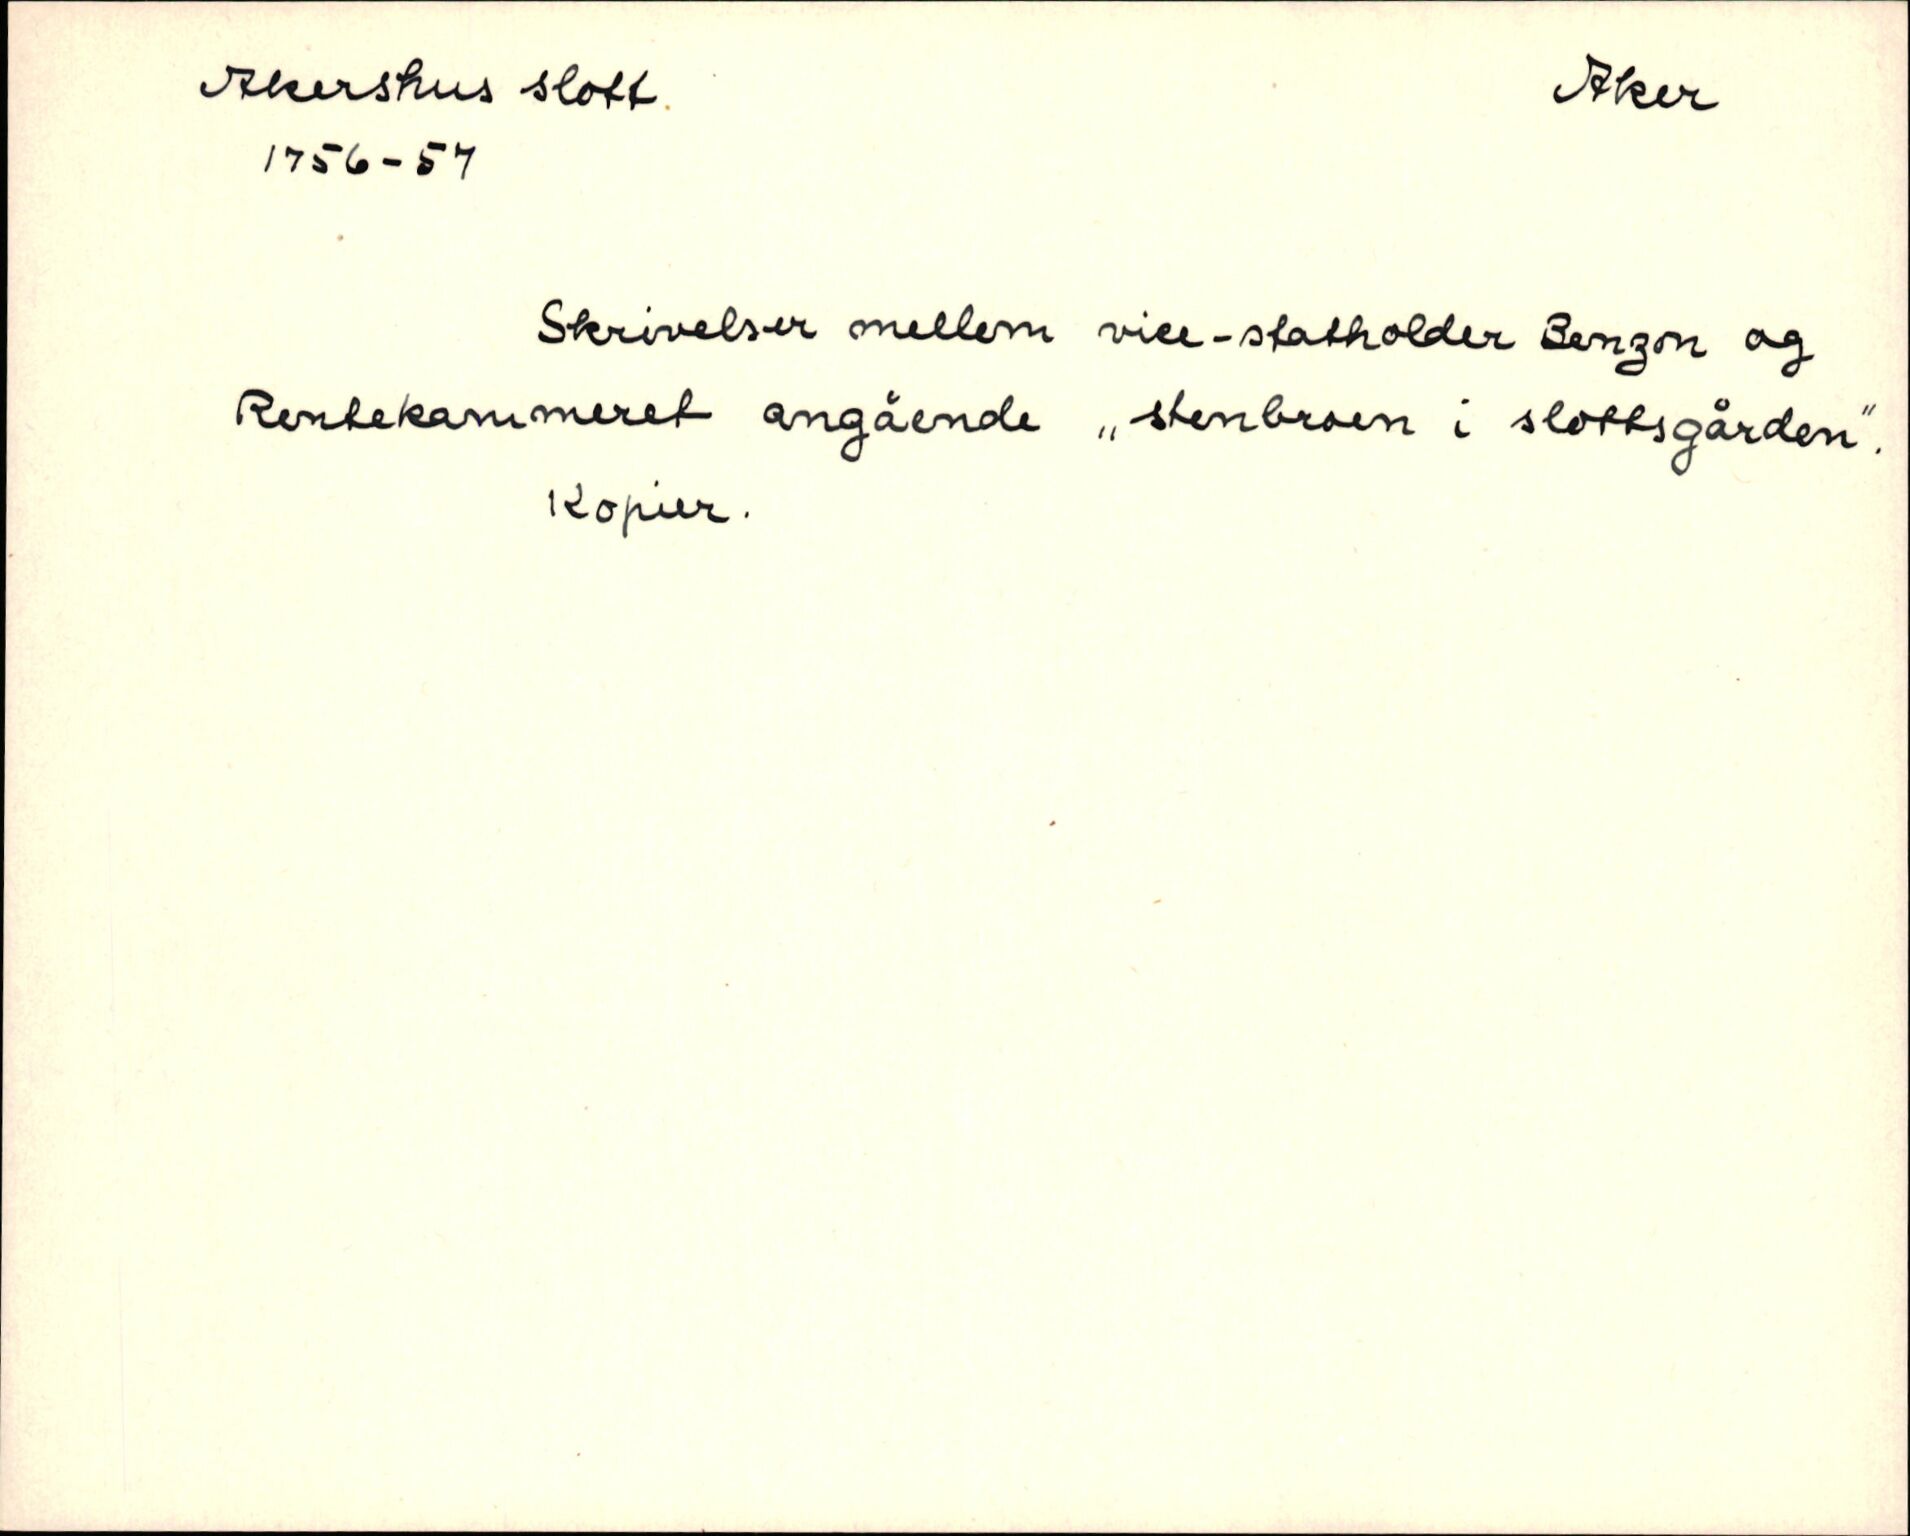 Akershus slott
Aker
1756-57
Skrivelser mellem vice-statholder Benzon og
Rentekammeret angående „stenbroen i slottsgården".
Kopier.